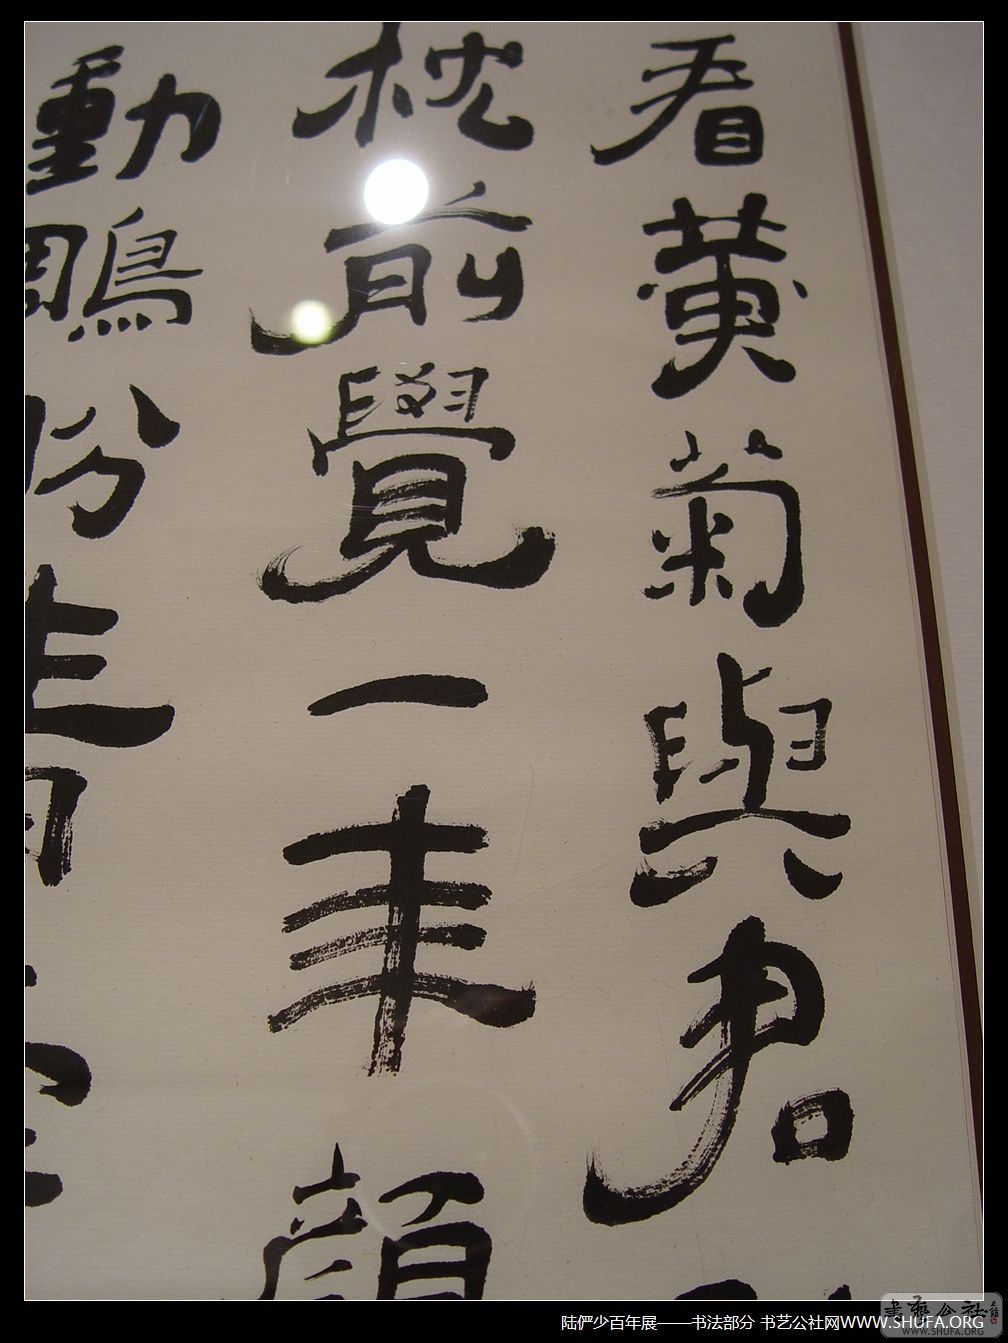 看黃菊與君
枕前覺一年顔
動鵰
陆俨少百年展——书法部分 书艺公社网WWW.SHUFA.ORG
書藝公社
WWW.SHUFA.ORG